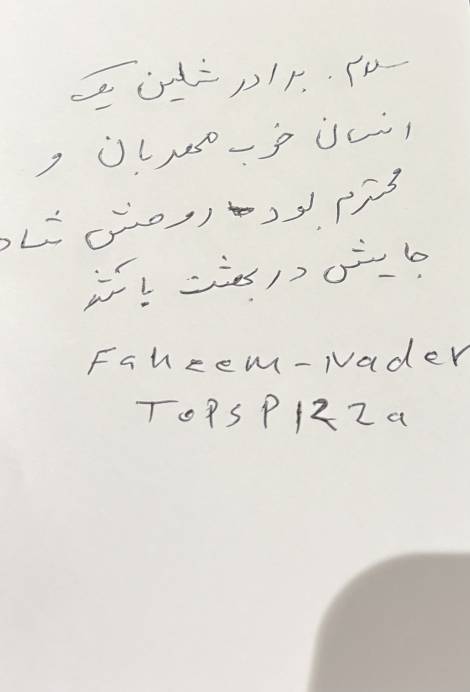 سلام . برادر شلین یک
انسان خوب مهربان و
محترم بود روحش شاد
جایش در بهشت باشد
Faheem - Nader
TOPS PIZZa